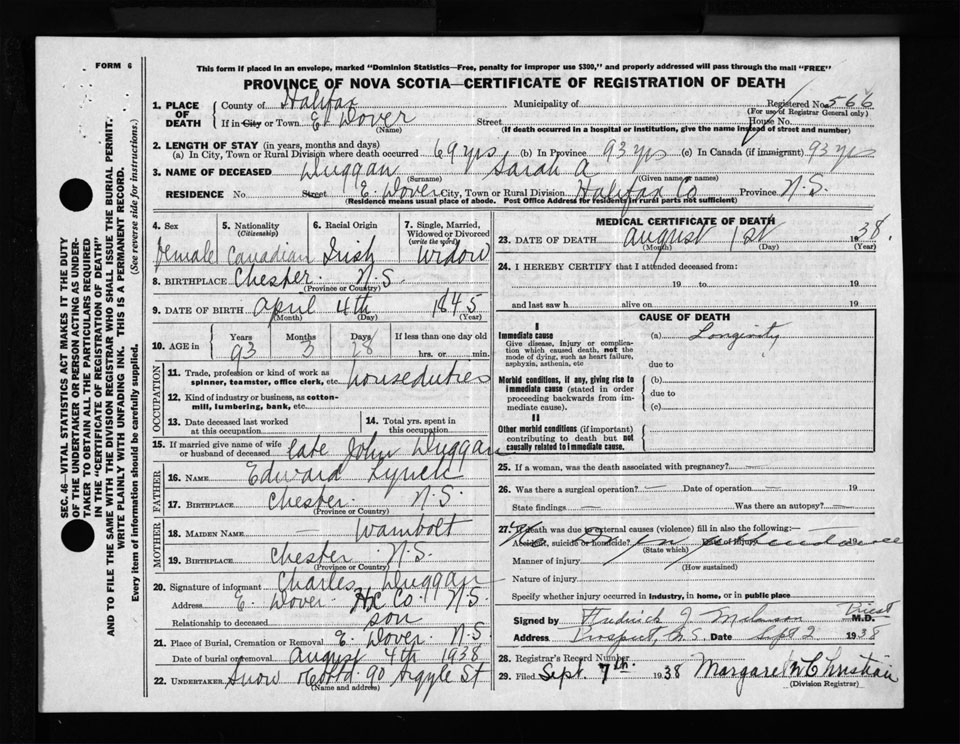 FORM 6
This form if placed in an envelope, marked "Dominion Statistics—Free, penalty for improper use $300," and properly addressed will pass through the mail "FREE"
PROVINCE OF NOVA SCOTIA—CERTIFICATE OF REGISTRATION OF DEATH
SEC. 46—VITAL STATISTICS ACT MAKES IT THE DUTY
OF THE UNDERTAKER OR PERSON ACTING AS UNDER-
TAKER TO OBTAIN ALL THE PARTICULARS REQUIRED
IN THE "CERTIFICATE OF REGISTRATION OF DEATH"
AND TO FILE THE SAME WITH THE DIVISION REGISTRAR WHO SHALL ISSUE THE BURIAL PERMIT.
WRITE PLAINLY WITH UNFADING INK. THIS IS A PERMANENT RECORD.
Every item of information should be carefully supplied. (See reverse side for instructions.)
1. PLACE OF DEATH County of Halifax Municipality of Registered No. 566
(For use of Registrar General only)
If in City or Town E. Dover Street House No.
(Name) (If death occurred in a hospital or institution, give the name instead of street and number)
2. LENGTH OF STAY (in years, months and days)
(a) In City, Town or Rural Division where death occurred 69 yrs (b) In Province 93 yrs (c) In Canada (if immigrant) 93 yrs
3. NAME OF DECEASED Duggan Sarah A.
(Surname) (Given name or names)
RESIDENCE No. Street E. Dover City, Town or Rural Division Halifax Co Province N.S.
(Residence means usual place of abode. Post Office Address for residents in rural parts not sufficient)
4. Sex 5. Nationality (Citizenship) 6. Racial Origin 7. Single, Married, Widowed or Divorced (write the word)
Female Canadian Irish Widow
8. BIRTHPLACE Chester N.S.
(Province or Country)
9. DATE OF BIRTH April 4th 1845
(Month) (Day) (Year)
10. AGE in Years Months Days If less than one day old
93 3 28 hrs. or min.
OCCUPATION
11. Trade, profession or kind of work as spinner, teamster, office clerk, etc. houseduties
12. Kind of industry or business, as cotton-mill, lumbering, bank, etc.
13. Date deceased last worked at this occupation 14. Total yrs. spent in this occupation
15. If married give name of wife or husband of deceased late John Duggan
FATHER
16. NAME Edward Lynch
17. BIRTHPLACE Chester N.S.
(Province or Country)
MOTHER
18. MAIDEN NAME Wambolt
19. BIRTHPLACE Chester N.S.
(Province or Country)
20. Signature of informant Charles Duggan
Address E. Dover Hx Co. N.S.
Relationship to deceased son
21. Place of Burial, Cremation or Removal E. Dover N.S.
Date of burial or removal August 4th 1938
22. UNDERTAKER Snow 90 Argyle St
(Name and address)
MEDICAL CERTIFICATE OF DEATH
23. DATE OF DEATH August 1st 1938.
(Month) (Day) (Year)
24. I HEREBY CERTIFY that I attended deceased from:
19 to 19
and last saw h alive on 19
CAUSE OF DEATH
I
Immediate cause (a) Longevity
Give disease, injury or complication which caused death, not the mode of dying, such as heart failure, asphyxia, asthenia, etc due to
Morbid conditions, if any, giving rise to immediate cause (stated in order proceeding backwards from immediate cause). (b)
due to
(c)
II
Other morbid conditions (if important) contributing to death but not causally related to immediate cause.
25. If a woman, was the death associated with pregnancy? —
26. Was there a surgical operation? — Date of operation — 19
State findings — Was there an autopsy? —
27. If death was due to external causes (violence) fill in also the following:
No Dr. in attendance
Accident, suicide or homicide? Date of injury 19
(State which)
Manner of injury
(How sustained)
Nature of injury
Specify whether injury occurred in industry, in home, or in public place
Signed by Fredrick J. Melanson Priest M.D.
Address Prospect, N.S. Date Sept 2 1938
28. Registrar's Record Number
29. Filed Sept. 7th 1938 Margaret M Christian
(Division Registrar)